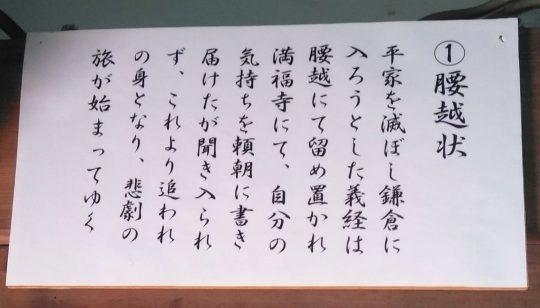 ①腰越状
平家を滅ぼし鎌倉に
入ろうとした義経は
腰越にて留め置かれ
満福寺にて、自分の
気持ちを頼朝に書き
届けたが聞き入られ
ず、これより追われ
の身となり、悲劇の
旅が始まってゆく